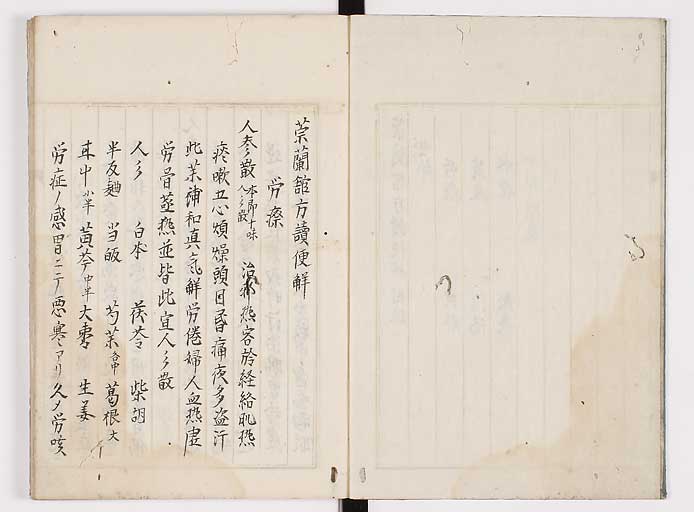 崇蘭館方讀便鮮
労瘵
人参散 本節十味 人参散 治邪熱客於経絡肌熱
痰嗽五心煩燥頭目昏痛夜多盗汗
此薬補和真気解労倦婦人血熱虚
労骨蒸熱並皆此宜人参散
人参 白朮 茯苓 柴胡
半夏麹 当皈 芍薬 葛根大
甘中 黄芩中 大棗 生姜
労症ノ感冒ニテ悪寒アリ久ノ労咳